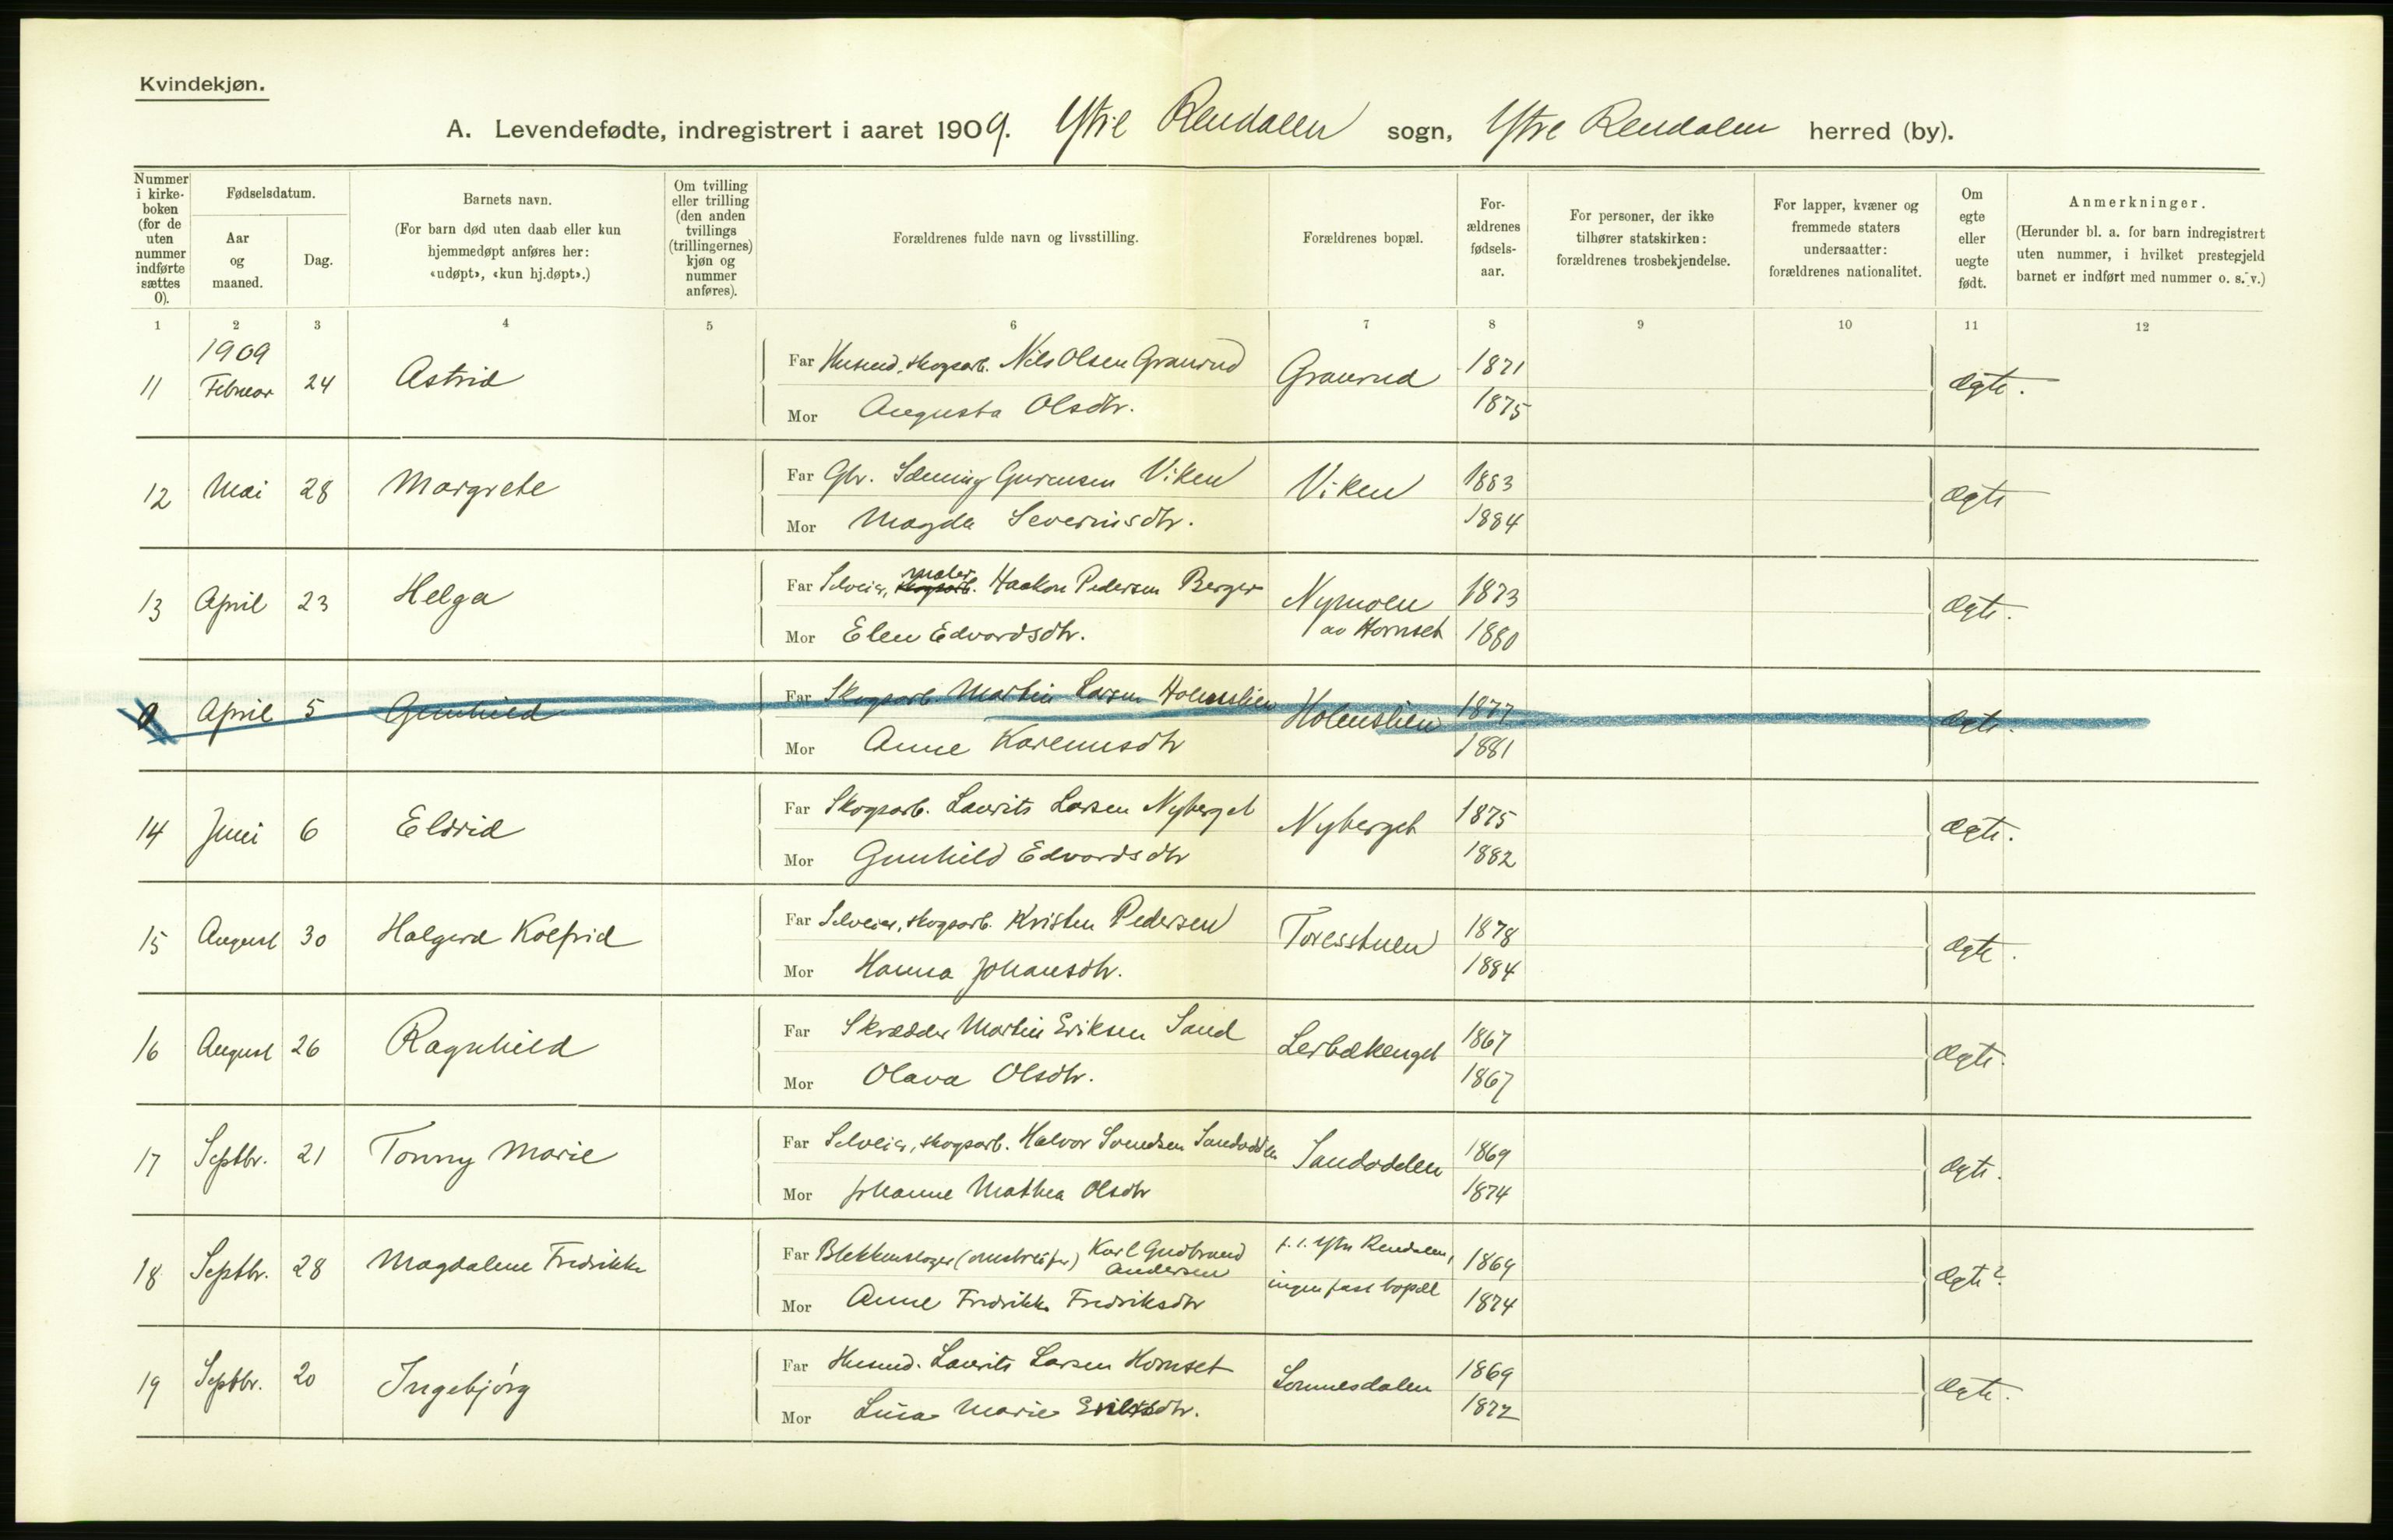 Kvindekjøn.
A. Levendefødte, indregistrert i aaret 1909. Ytre Rendalen sogn, Ytre Rendalen herred (by).
Nummer i kirke- boken (for de uten nummer indførte sættes 0).
Fødselsdatum.
Aar og maaned.
Dag.
Barnets navn.
(For barn død uten daab eller kun hjemmedøpt anføres her: «udøpt», «kun hj.døpt».)
Om tvilling eller trilling (den anden tvillings (trillingernes) kjøn og nummer anføres).
Forældrenes fulde navn og livsstilling.
Forældrenes bopæl.
For- ældrenes fødsels- aar.
For personer, der ikke tilhører statskirken: forældrenes trosbekjendelse.
For lapper, kvæner og fremmede staters undersaatter: forældrenes nationalitet.
Om egte eller uegte født.
Anmerkninger.
(Herunder bl. a. for barn indregistrert uten nummer, i hvilket prestegjeld barnet er indført med nummer o. s. v.)
1 2 3 4 5 6 7 8 9 10 11 12
1909
11 Februar 24 Astrid Far Husmd., skogsarb. Nils Olsen Granrud Granrud 1871 ægte.
Mor Augusta Olsdtr. 1875
12 Mai 28 Margrete Far Gbr. Viken Viken 1883 ægte
Mor Magda Severinsdtr. 1884
13 April 23 Helga Far Selveier, maler skogsarb. Haakon Pedersen Berger Nymoen 1873 ægte.
Mor Elen Edvardsdtr. av Hornset 1880
0 April 5 Gunhild Far Skogsarb Martin Larsen Holmslien Holmslien 1877 ægte.
Mor Anne Karenusdtr 1881
14 Juni 6 Eldrid Far Skogsarb. Laurits Larsen Nyberget Nyberget 1875 ægte.
Mor Gunhild Edvardsdtr 1882
15 August 30 Halgerd Kolfrid Far Selveier, skogsarb. Kristen Pedersen Toresstuen 1878 ægte.
Mor Hanna Johansdtr. 1884
16 August 26 Ragnhild Far Skrædder Martin Eriksen Sand Lerbækenget 1867 ægte.
Mor Olava Olsdtr. 1867
17 Septbr. 21 Tonny Marie Far Selveier, skogsarb. Halvor Svendsen Sandodden Sandodden 1869 ægte.
Mor Johanne Mathea Olsdtr 1874
18 Septbr. 28 Magdalene Fredrikke Far Blekkenslager (omstreifer) Karl Gudbrand Andersen f. i. Ytre Rendalen, 1869 ægte?
Mor Anne Fredrikke Fredriksdtr ingen fast bopæl 1874
19 Septbr. 20 Ingebjörg Far Husmd. Laurits Larsen Hornset Lomnesdalen 1869 ægte.
Mor Lina Marie Eriksdtr. 1872